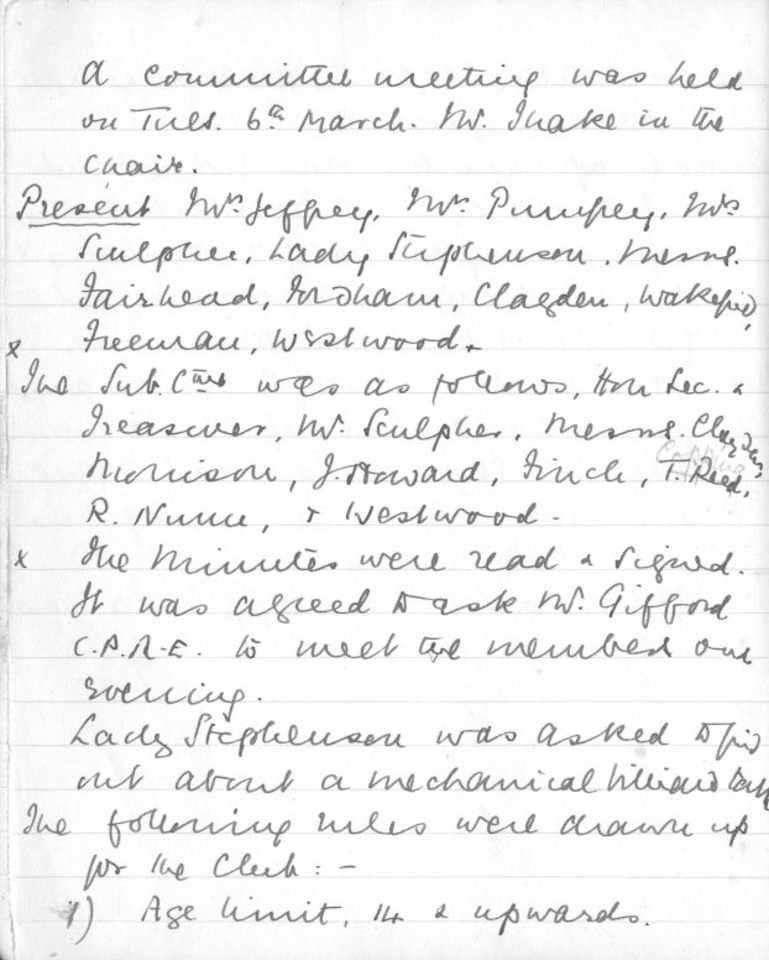 A committee meeting was held
on Tues. 6th March. Mr. Thake in the
Chair.
Present Mrs Jeffrey, Mrs Pumfrey, Mrs
Sculpher, Lady Stephenson, Messrs.
Fairhead, Fordham, Clagden, Wakefield,
Freeman, Westwood.
x
The Sub. Cttee was as follows, Hon Sec. &
Treasurer, Mr. Sculpher, Messrs. Clayden,
Morrison, J. Howard, Finch, T. Reed,
R. Nunn, & Westwood.
x The Minutes were read & signed.
It was agreed to ask Mr. Gifford
C.P.R.E. to meet the members one
evening.
Lady Stephenson was asked to find
out about a mechanical billiard table
The following rules were drawn up
for the Club : -
1) Age limit, 14 & upwards.